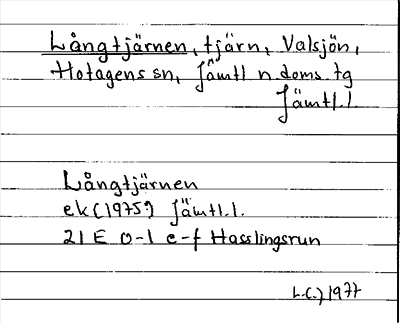 Långtjärnen, tjärn, Valsjön,
Hotagens sn, Jämtl n. doms. tg
Jämtl.l.
Långtjärnen
ek (1975?) Jämtl.l.
21 E 0-1 e-f Hasslingsrun
L.C.) 1977